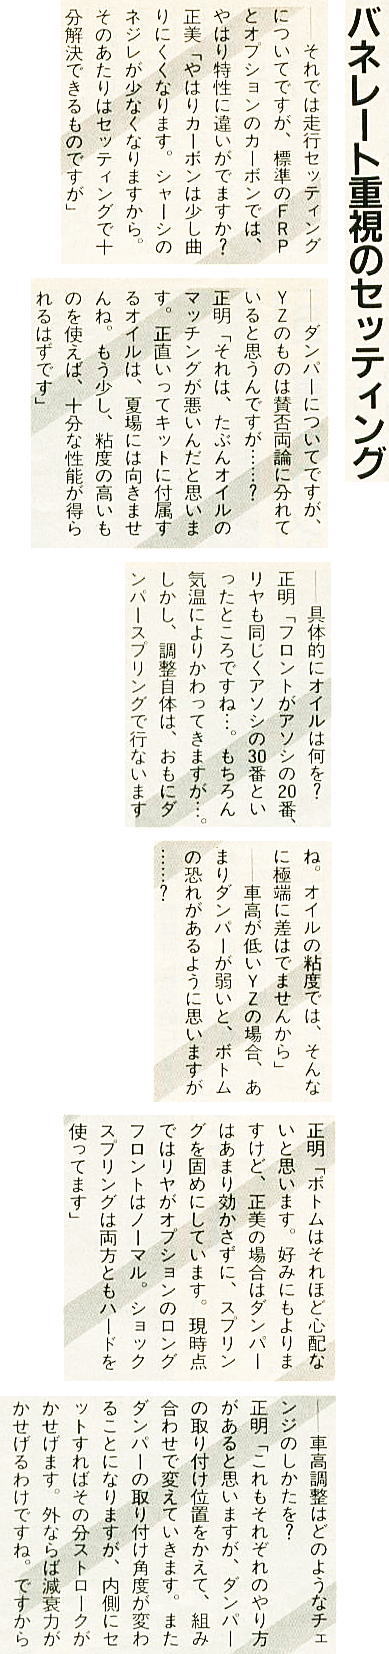 バネレート重視のセッティング
――それでは走行セッティング
についてですが、標準のＦＲＰ
とオプションのカーボンでは、
やはり特性に違いがでますか？
正美「やはりカーボンは少し曲
りにくくなります。シャーシの
ネジレが少なくなりますから。
そのあたりはセッティングで十
分解決できるものですが」
――ダンパーについてですが、
ＹＺのものは賛否両論に分れて
いると思うんですが……？
正明「それは、たぶんオイルの
マッチングが悪いんだと思いま
す。正直いってキットに付属す
るオイルは、夏場には向きませ
んね。もう少し、粘度の高いも
のを使えば、十分な性能が得ら
れるはずです」
――具体的にオイルは何を？
正明「フロントがアソシの20番、
リヤも同じくアソシの30番とい
ったところですね…。もちろん
気温によりかわってきますが…。
しかし、調整自体は、おもにダ
ンパースプリングで行ないます
ね。オイルの粘度では、そんな
に極端に差はでませんから」
――車高が低いＹＺの場合、あ
まりダンパーが弱いと、ボトム
の恐れがあるように思いますが
……？
正明「ボトムはそれほど心配な
いと思います。好みにもよりま
すけど、正美の場合はダンパー
はあまり効かさずに、スプリン
グを固めにしています。現時点
ではリヤがオプションのロング
フロントはノーマル。ショック
スプリングは両方ともハードを
使ってます」
――車高調整はどのようなチェ
ンジのしかたを？
正明「これもそれぞれのやり方
があると思いますが、ダンパー
の取り付け位置をかえて、組み
合わせで変えていきます。また
ダンパーの取り付け角度が変わ
ることになりますが、内側にセ
ットすればその分ストロークが
かせげます。外ならば減衰力が
かせげるわけですね。ですから